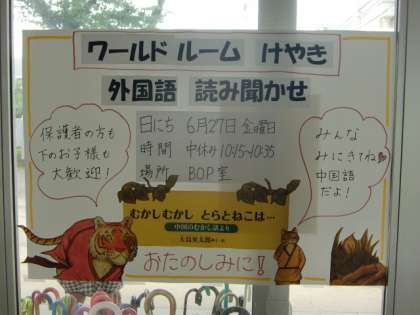 ワールド ルーム けやき
外国語 読み聞かせ
保護者の方も
下のお子様も
大歓迎!
日にち 6月27日 金曜日
時間 中休み 10:15~10:35
場所 BOP室
みんな
みにきてね
中国語
だよ!
むかしむかし とらとねこは…
中国のむかし話より
大島英太郎
おたのしみに!